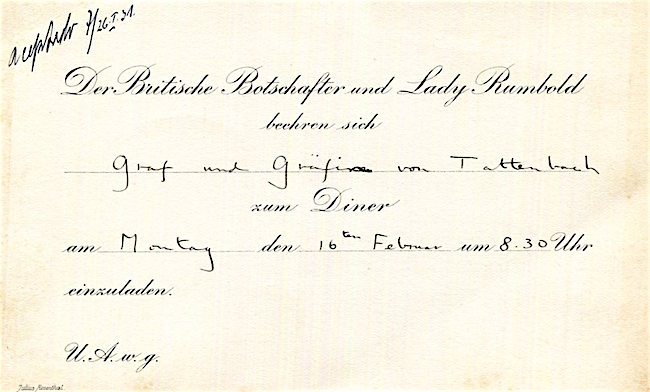 acceptado 7/26.I.31.
Der Britische Botschafter und Lady Rumbold
beehren sich
Graf und Gräfin von Tattenbach
zum Diner
am Montag den 16ten Februar um 8.30 Uhr
einzuladen.
U. A. w. g.